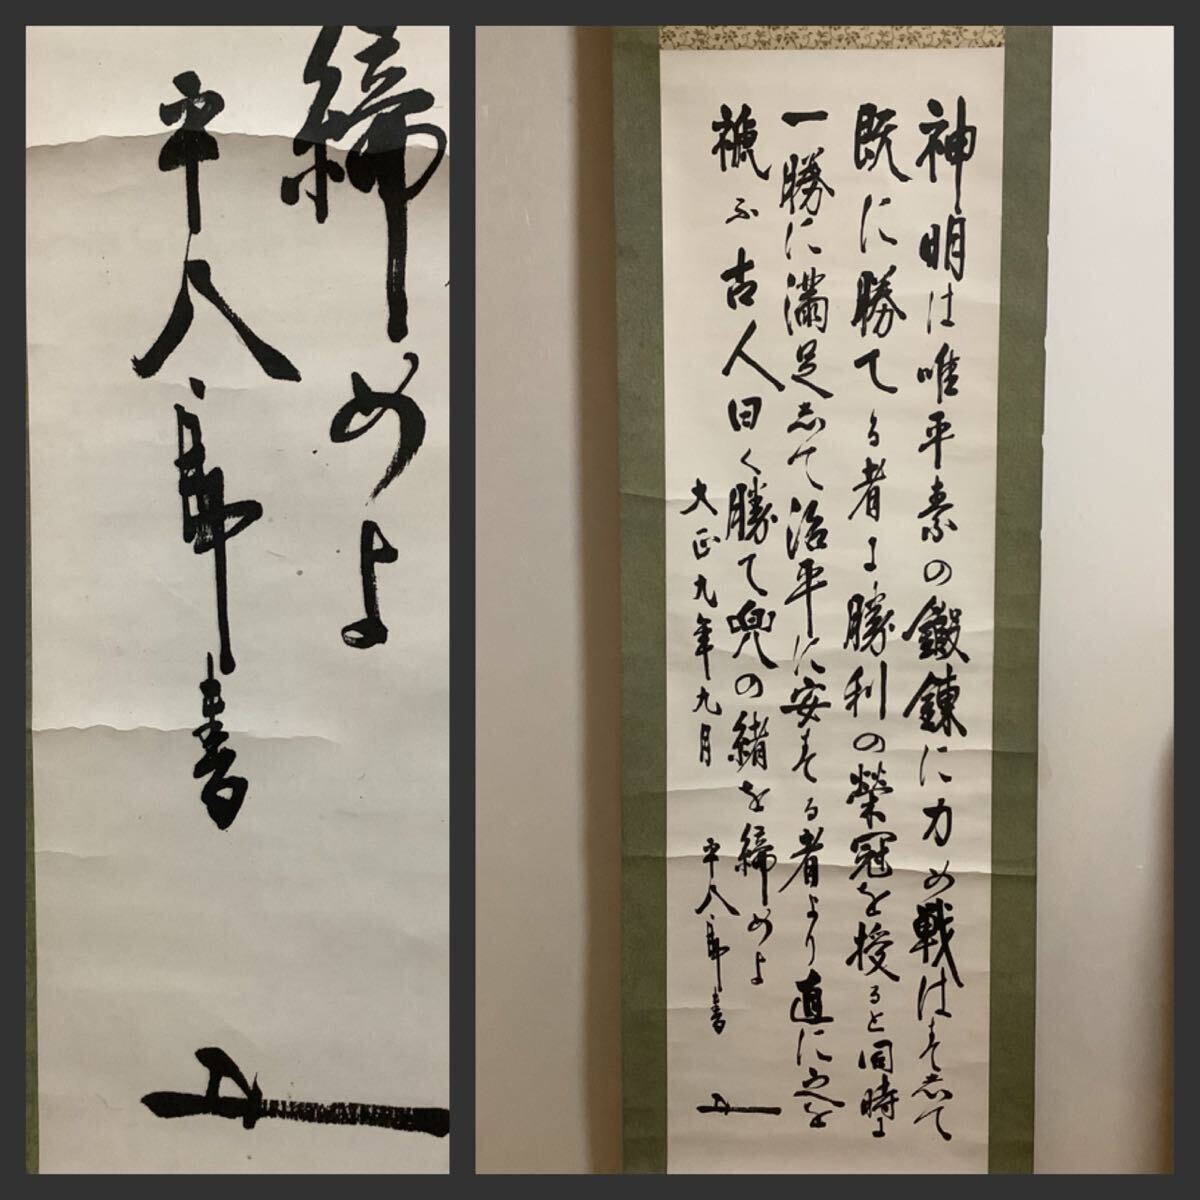 神明は唯平素の鍛錬に力め戦はずして
既に勝てる者に勝利の榮冠を授ると同時に
一勝に満足して治平に安ずる者より直に之を
褫ふ古人曰く勝て兜の緒を締めよ
大正九年九月
平八郎書
締めよ
平八郎書